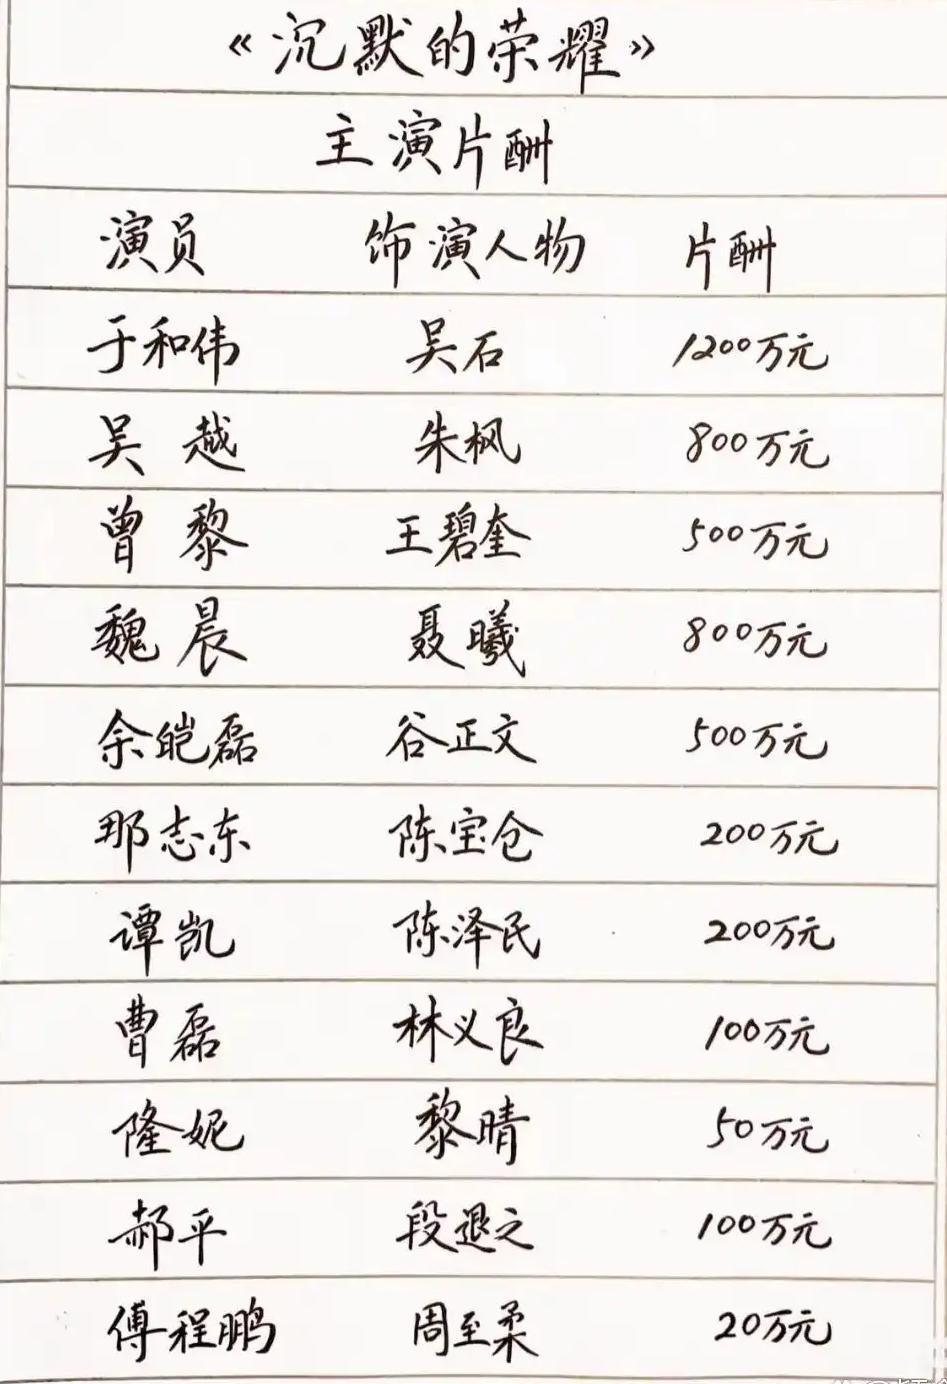 《沉默的荣耀》
主演片酬
演员 饰演人物 片酬
于和伟 吴石 1200万元
吴越 朱枫 800万元
曾黎 王碧奎 500万元
魏晨 聂曦 800万元
余皑磊 谷正文 500万元
那志东 陈宝仓 200万元
谭凯 陈泽民 200万元
曹磊 林义良 100万元
隆妮 黎晴 50万元
郝平 段退之 100万元
傅程鹏 周至柔 20万元